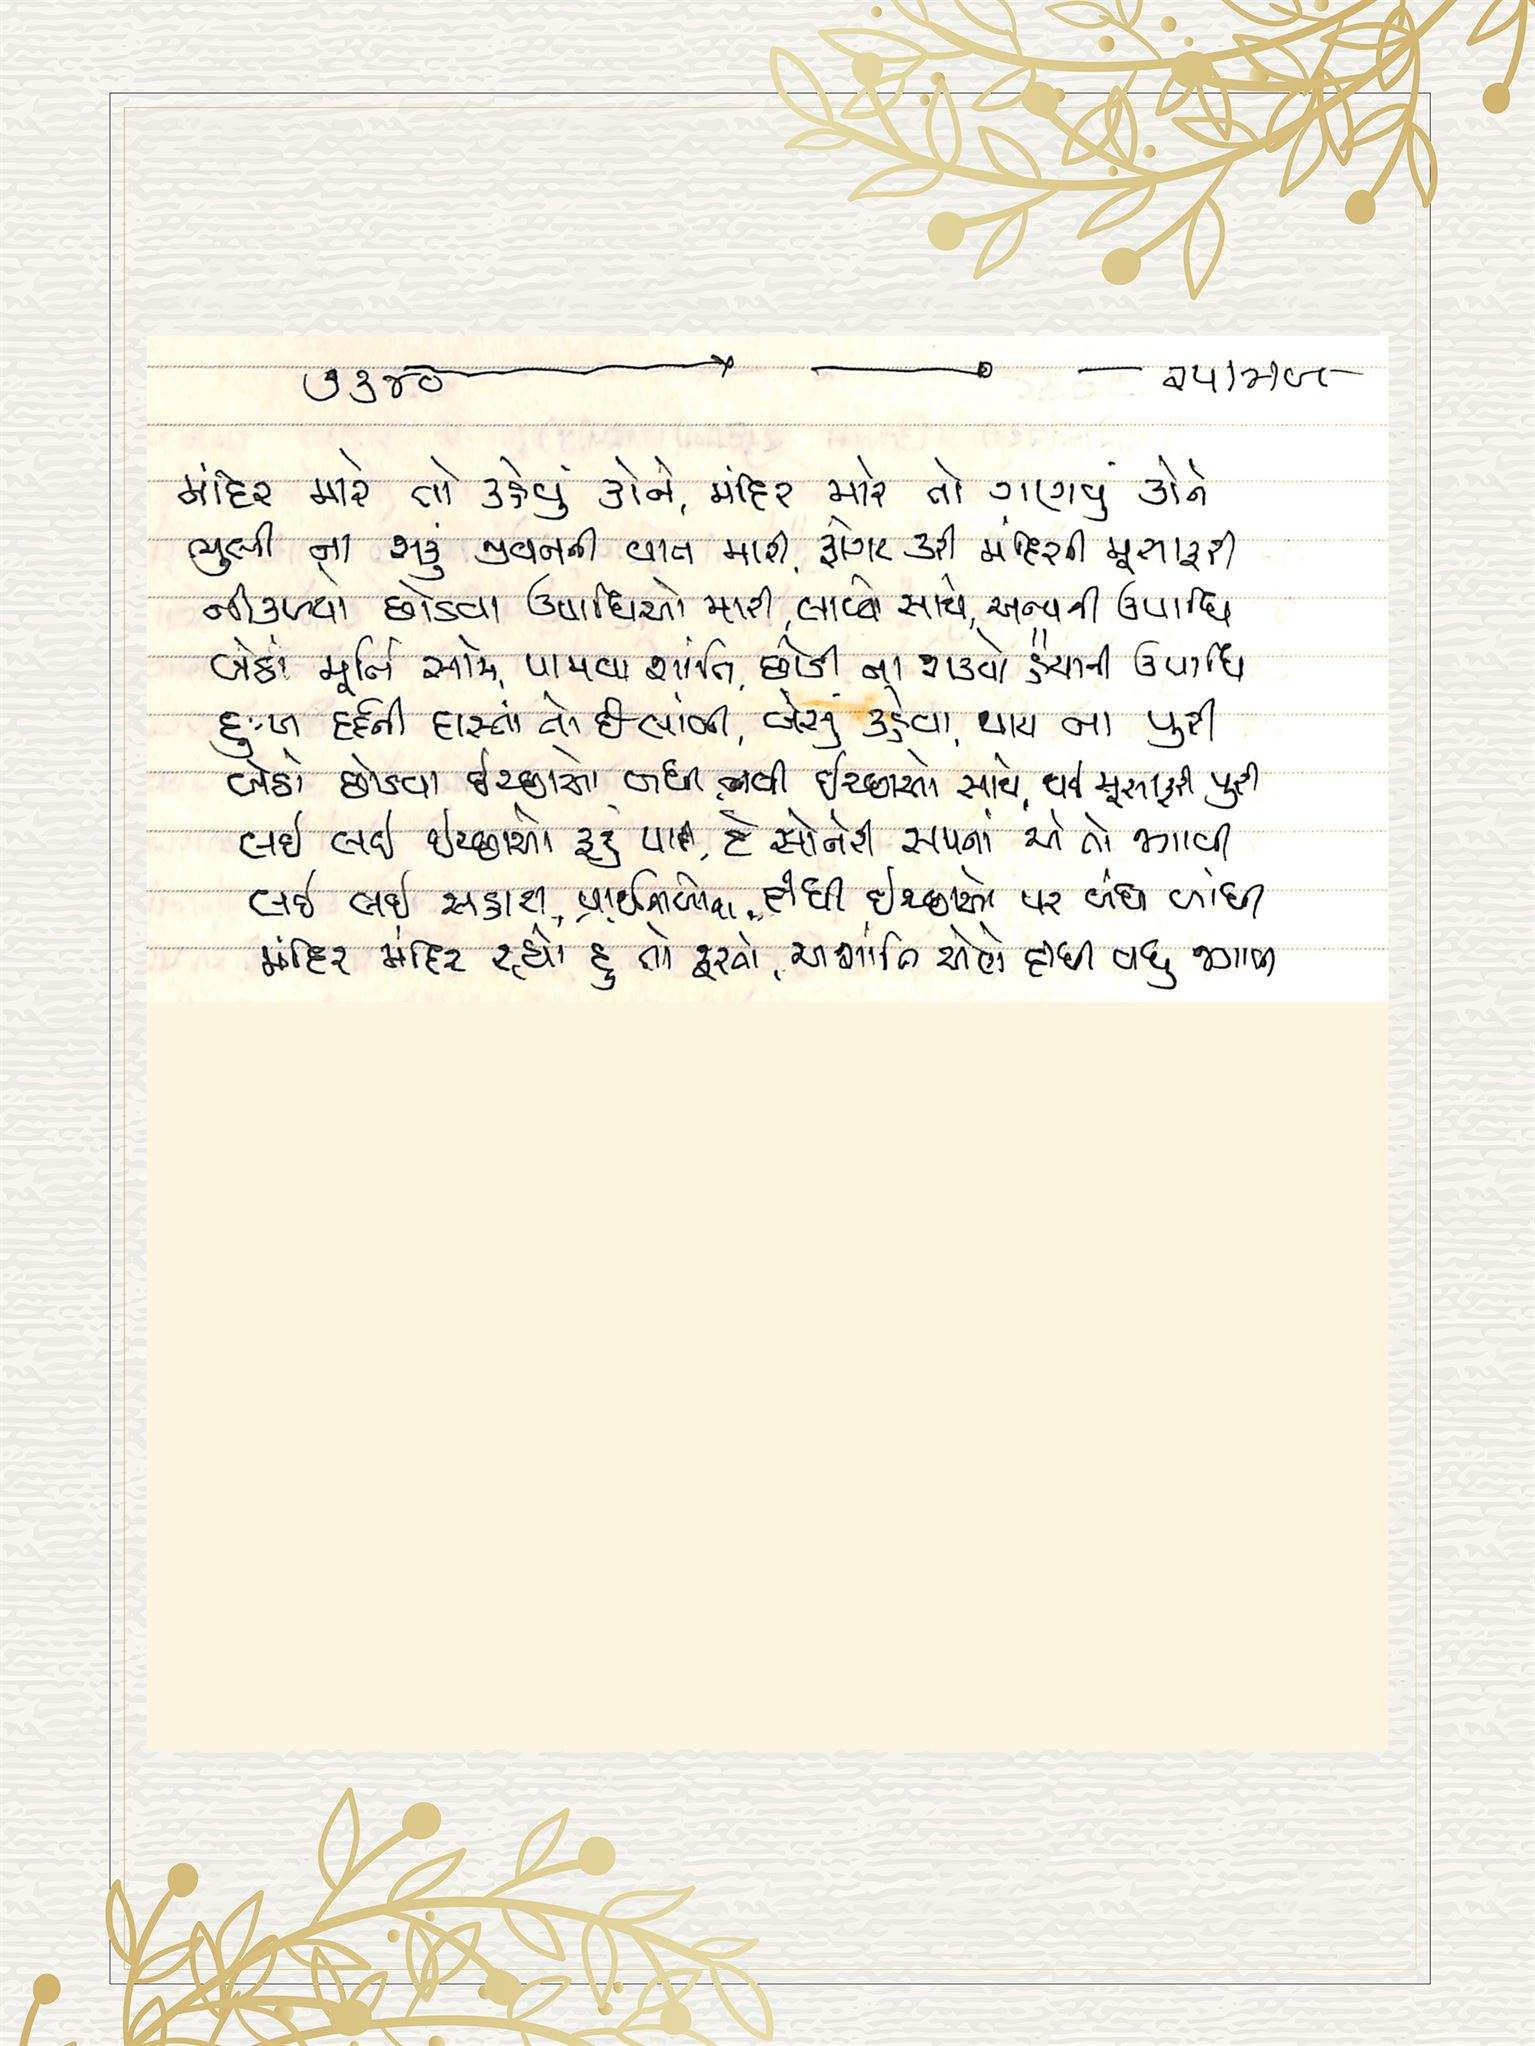 ૭૩૪૦
મંદિર મારે તો કહેવું કોને, મંદિર મારે તો ગણવું કોને
ભુલી ના શકું જીવનની વાત મારી, ફોગટ કરી મંદિરની મૂસાફરી
નીકળ્યો છોડવા ઉપાધિઓ મારી, લાવ્યો સાથે, અન્યની ઉપાધિ
બેઠો મૂર્તિ સામે, પામવા શાંતિ, છોડી ના શક્યો હૈયાની ઉપાધિ
દુઃખ દર્દની દાસ્તાં તો છે લાંબી, બેસું કહેવા, થાય ના પુરી
બેઠો છોડવા ઈચ્છાઓ બધી, નવી ઈચ્છાઓ સાથે, થઈ મૂસાફરી પુરી
લઈ લઈ ઈચ્છાઓ ફરું પાછો, છે સોનેરી સપનાં એ તો ઝાવી
લઈ લઈ સહારા, દીધી ઈચ્છાઓ પર બંધ બાંધી
મંદિર મંદિર રહ્યો હું તો ફરતો, અશાંતિ એણે દીધી વધુ